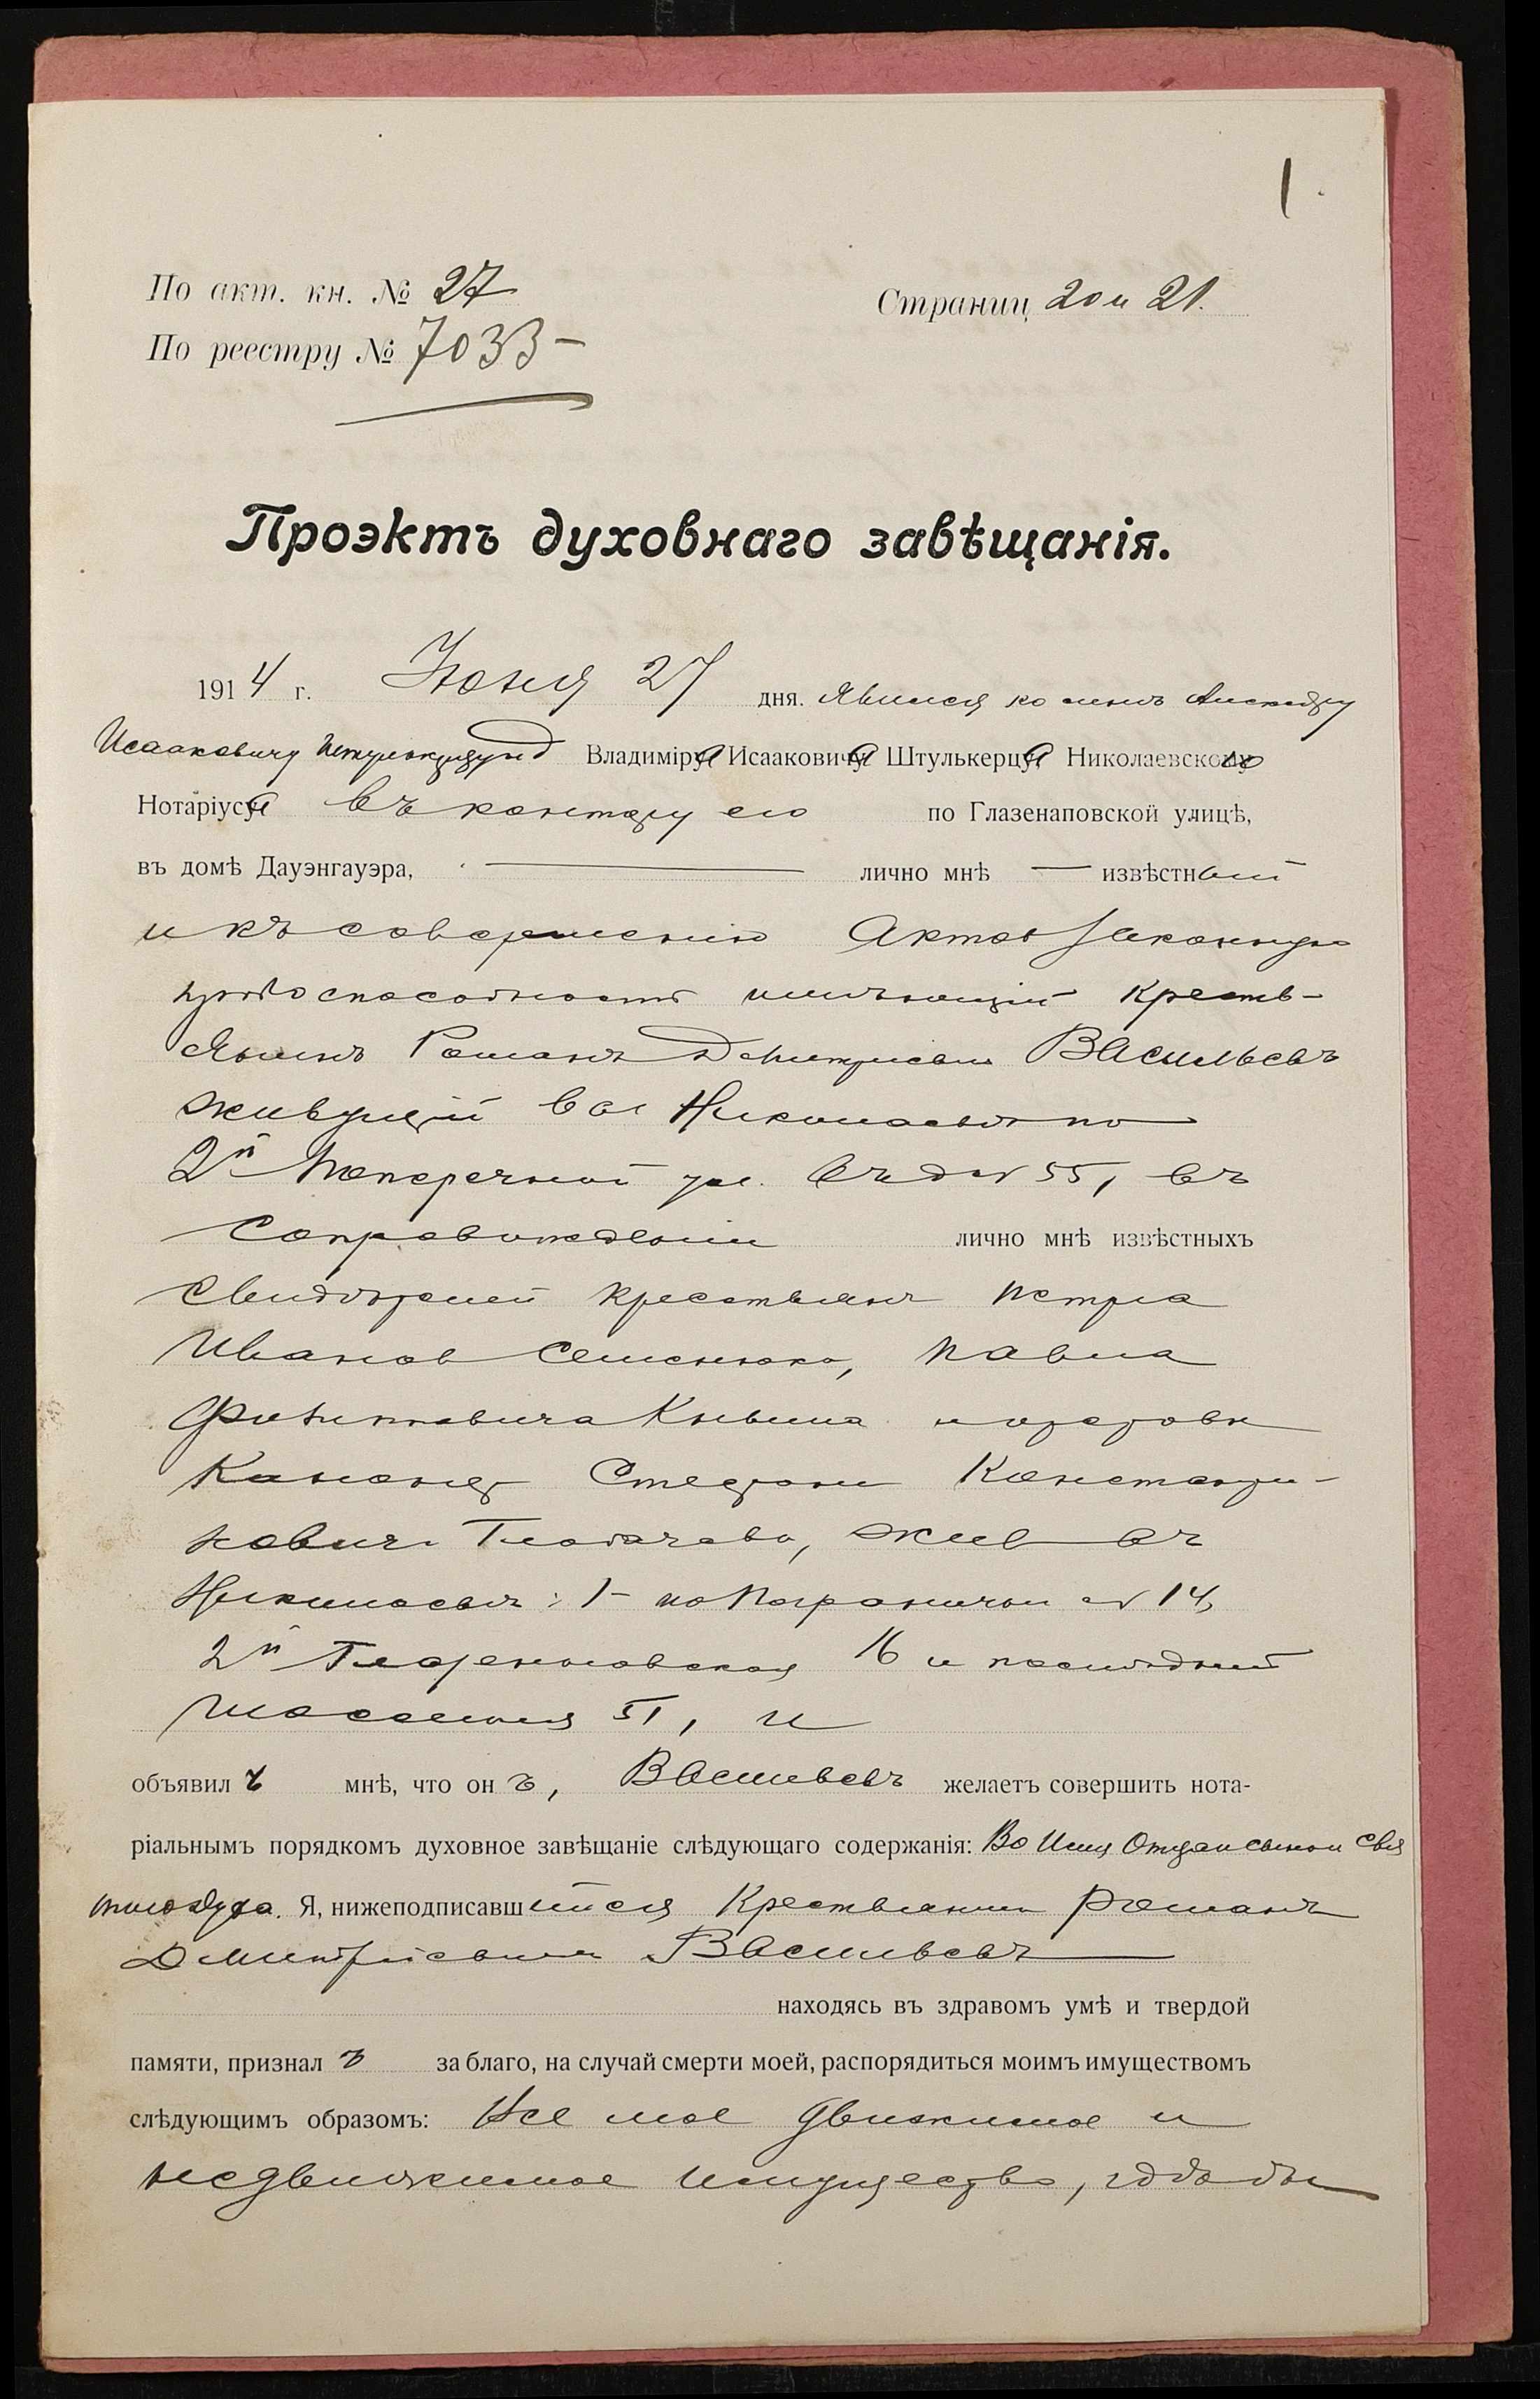 1.
По акт. кн. № 27
Страниц 20 и 21.
По реестру № 7033 —
Проэктъ духовнаго завѣщанія.
1914 г. Іюня 27 дня. Явился ко мнѣ
Исааковичу Владиміра Исааковича Штулькерца Николаевскаго
Нотаріуса въ контору его по Глазенаповской улицѣ,
въ домѣ Дауэнгауэра, — лично мнѣ — извѣстный
и къ совершенію актов законную
правоспособность имѣющій кресть-
янинъ Романъ Дмитріевич Васильевъ
живущій в г. Николаевѣ по
2й Поперечной ул. въ д № 55, въ
сопровожденіи лично мнѣ извѣстныхъ
свидѣтелей крестьянъ Петра
Иванов Семенюка, Павла
Филипповича и
Стефана Константи-
нович жив въ
Николаевѣ: 1- по Пограничной № 14,
2й Глазенаповская 16 и послѣдній
51, и
объявилъ мнѣ, что онъ, Васильевъ желаетъ совершить нота-
ріальнымъ порядкомъ духовное завѣщаніе слѣдующаго содержанія: Во Имя Отца и Сына и Свя
таго Духа. Я, нижеподписавшійся крестьянин Романъ
Дмитріевич Васильевъ
находясь въ здравомъ умѣ и твердой
памяти, призналъ за благо, на случай смерти моей, распорядиться моимъ имуществомъ
слѣдующимъ образомъ: Все мое движимое и
недвижимое имущество, гдѣ бы